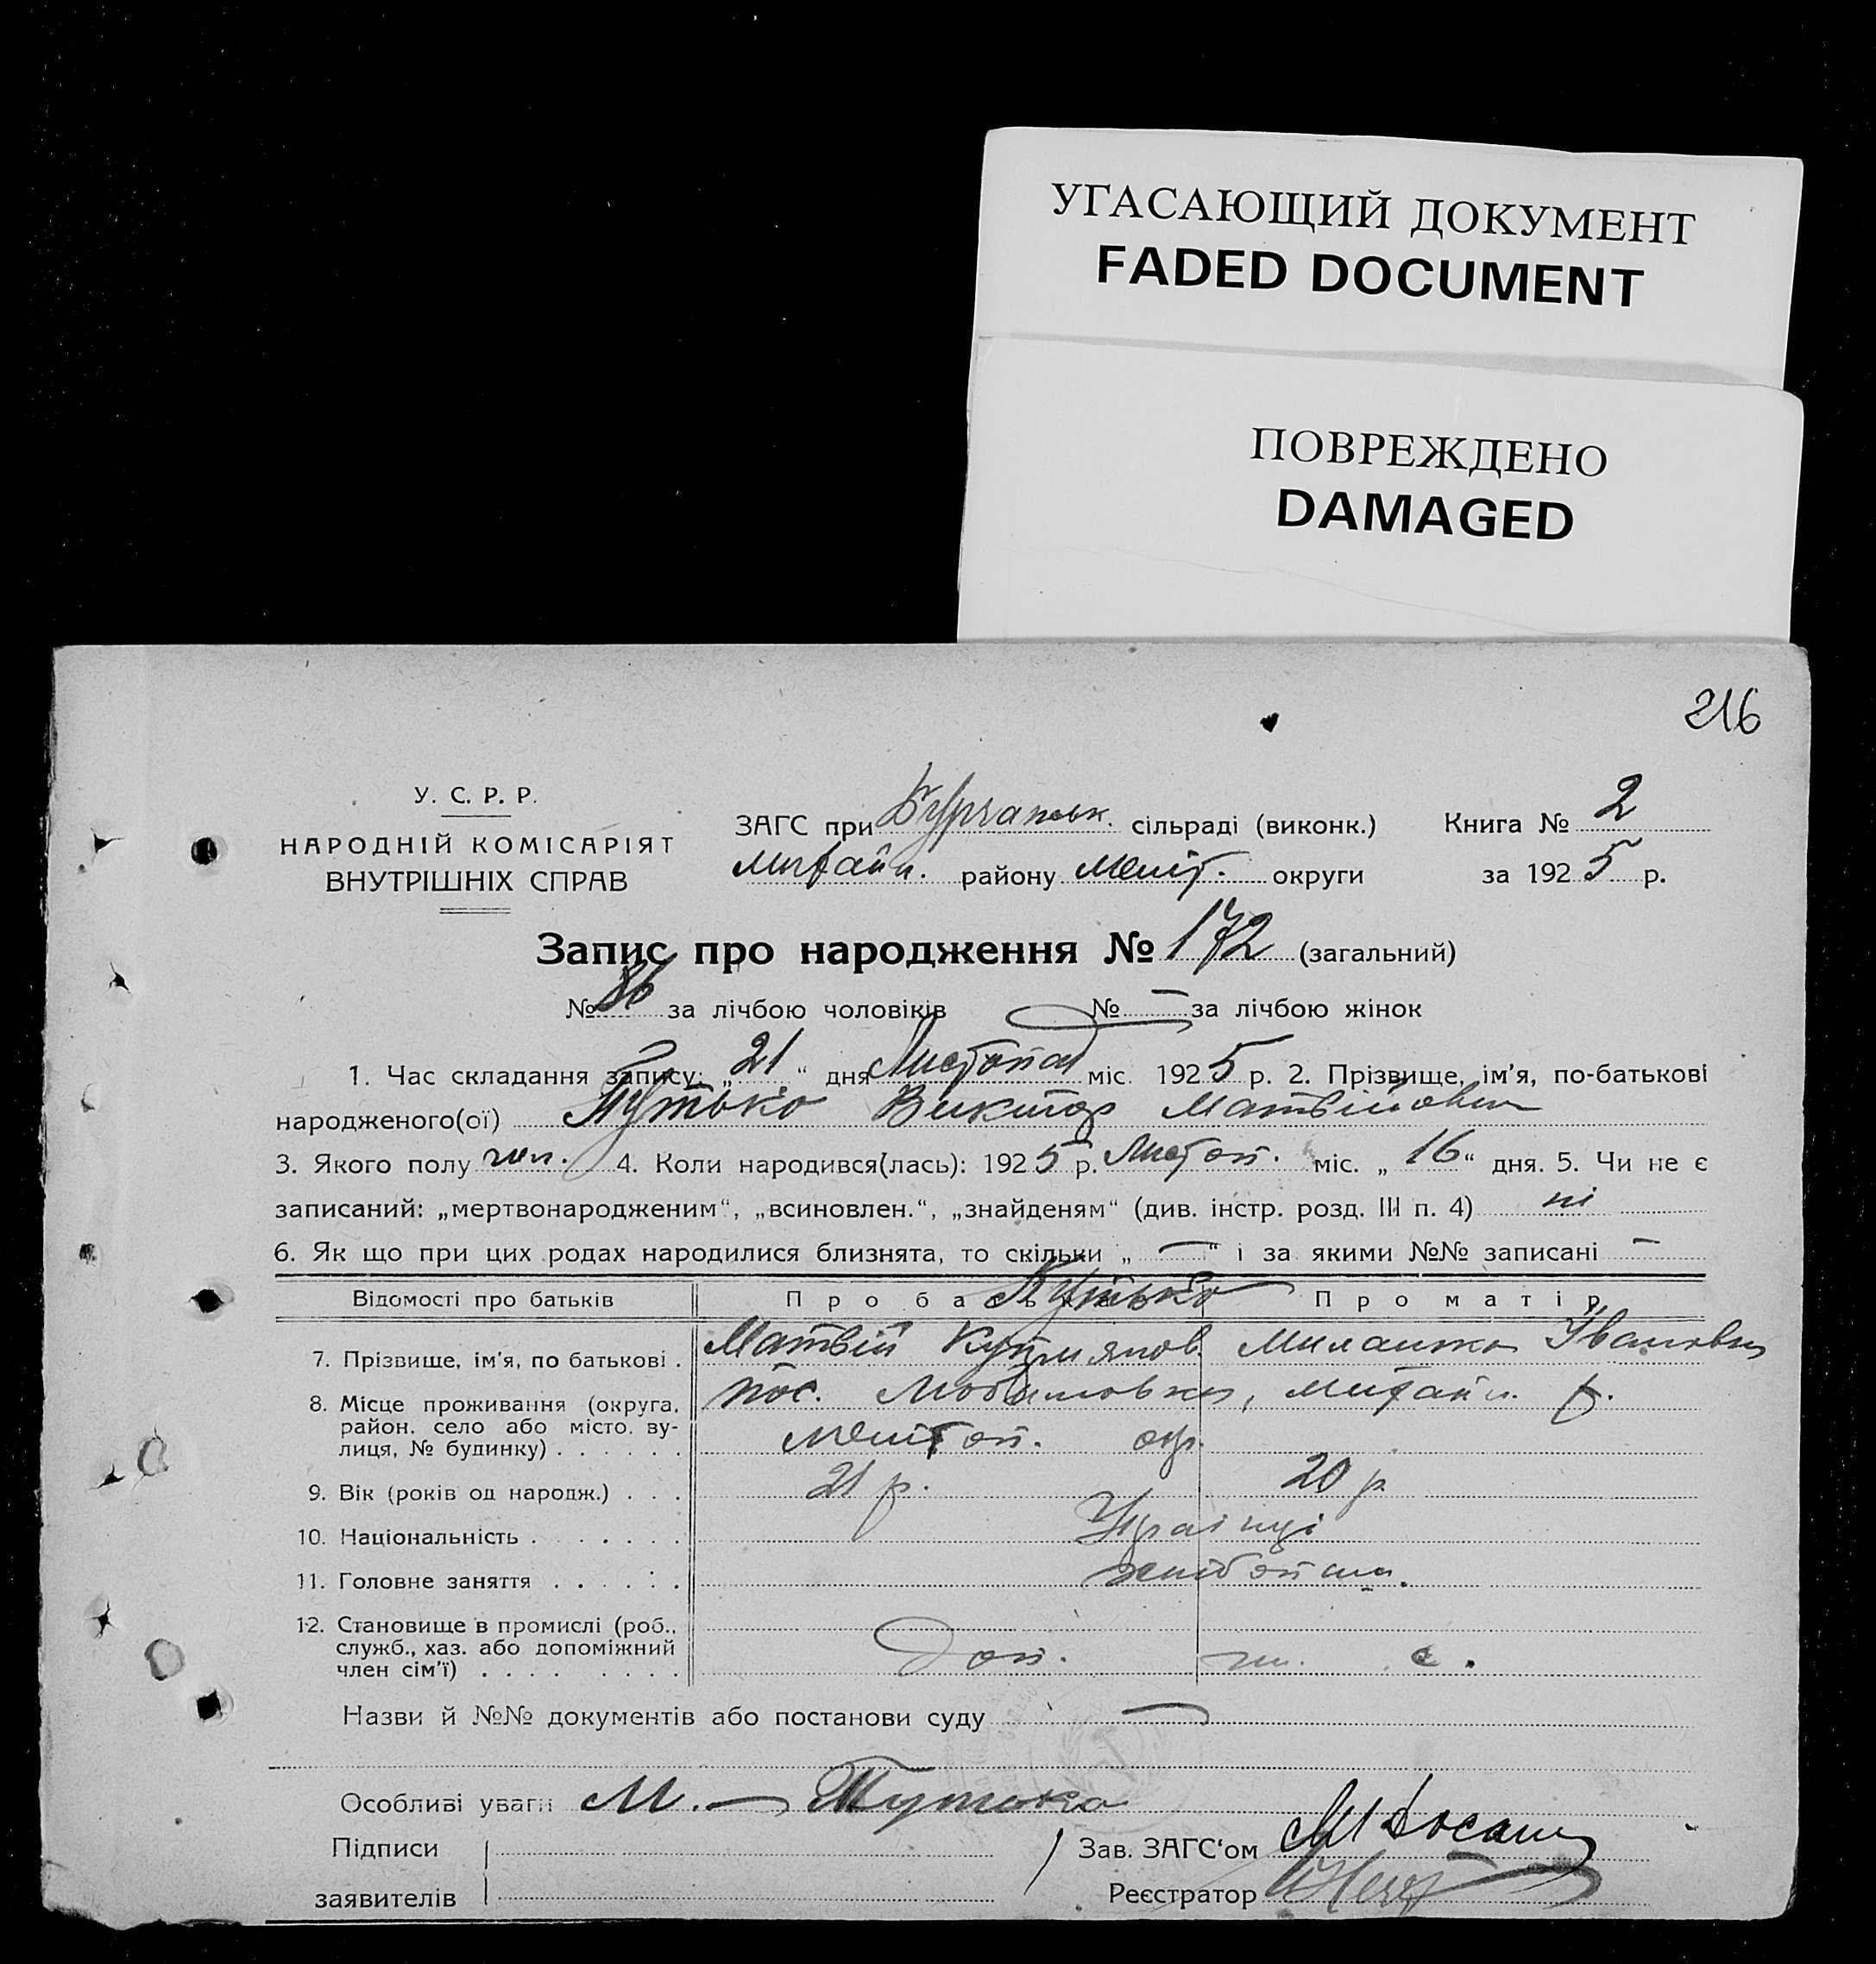 УГАСАЮЩИЙ ДОКУМЕНТ
FADED DOCUMENT
ПОВРЕЖДЕНО
DAMAGED
216
У. С. Р. Р.
НАРОДНІЙ КОМІСАРІЯТ
ВНУТРІШНІХ СПРАВ
ЗАГС при сільраді (виконк.) Книга № 2
району Меліт. округи за 1925 р.
Запис про народження № 172 (загальний)
№ 86 за лічбою чоловіків № — за лічбою жінок
1. Час складання запису: „21“ дня Листопад міс. 1925 р. 2. Прізвище, ім'я, по-батькові
народженого(ої) Тутько Виктор Матвійович
3. Якого полу чол. 4. Коли народився(лась): 1925 р. Листоп. міс. „16“ дня. 5. Чи не є
записаний: „мертвонародженим“, „всиновлен.“, „знайденям“ (див. інстр. розд. III п. 4) ні
6. Як що при цих родах народилися близнята, то скільки „—“ і за якими №№ записані —
Відомості про батьків Про батька Про матір
Тутько
7. Прізвище, ім'я, по батькові . Матвій Миланка Івановна
8. Місце проживання (округа, пос. р.
район, село або місто, ву-
лиця, № будинку) . . . . . . Мелітоп. окр.
9. Вік (років од народж.) . . . 21 р. 20 р.
10. Національність . . . . . . . Українці
11. Головне заняття . . . . . .
12. Становище в промислі (роб.,
служб., хаз. або допоміжний
член сім'ї) . . . . . . . . . Доп. чл. с.
Назви й №№ документів або постанови суду —
Особливі уваги М. — Тутько
Підписи Зав. ЗАГС'ом
заявителів Реєстратор